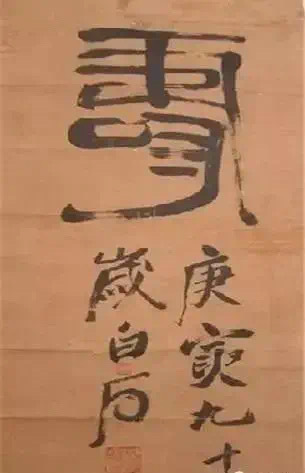 寿
庚寅九十
歲白石